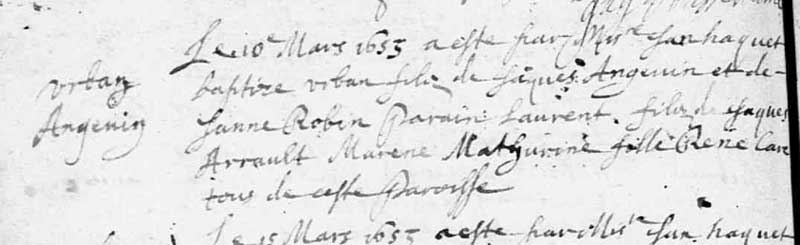 Le 10e Mars 1653 a este par Misre Jan haquet
urban
Angevin
baptize urban filz de Jaques Angevin et de
Janne Robin Parain Laurent filz de Jaques
Arrault Marene Mathurine fille René
tous de ceste Paroisse
Le 15 Mars 1653 a este par Misre Jan haquet